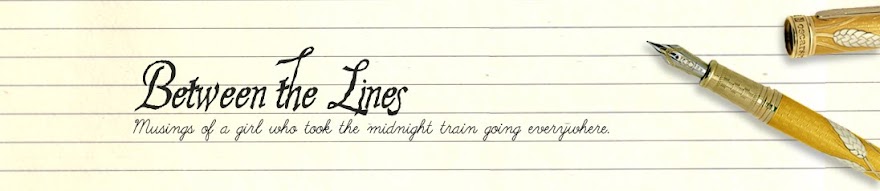 Between the Lines
Musings of a girl who took the midnight train going everywhere.